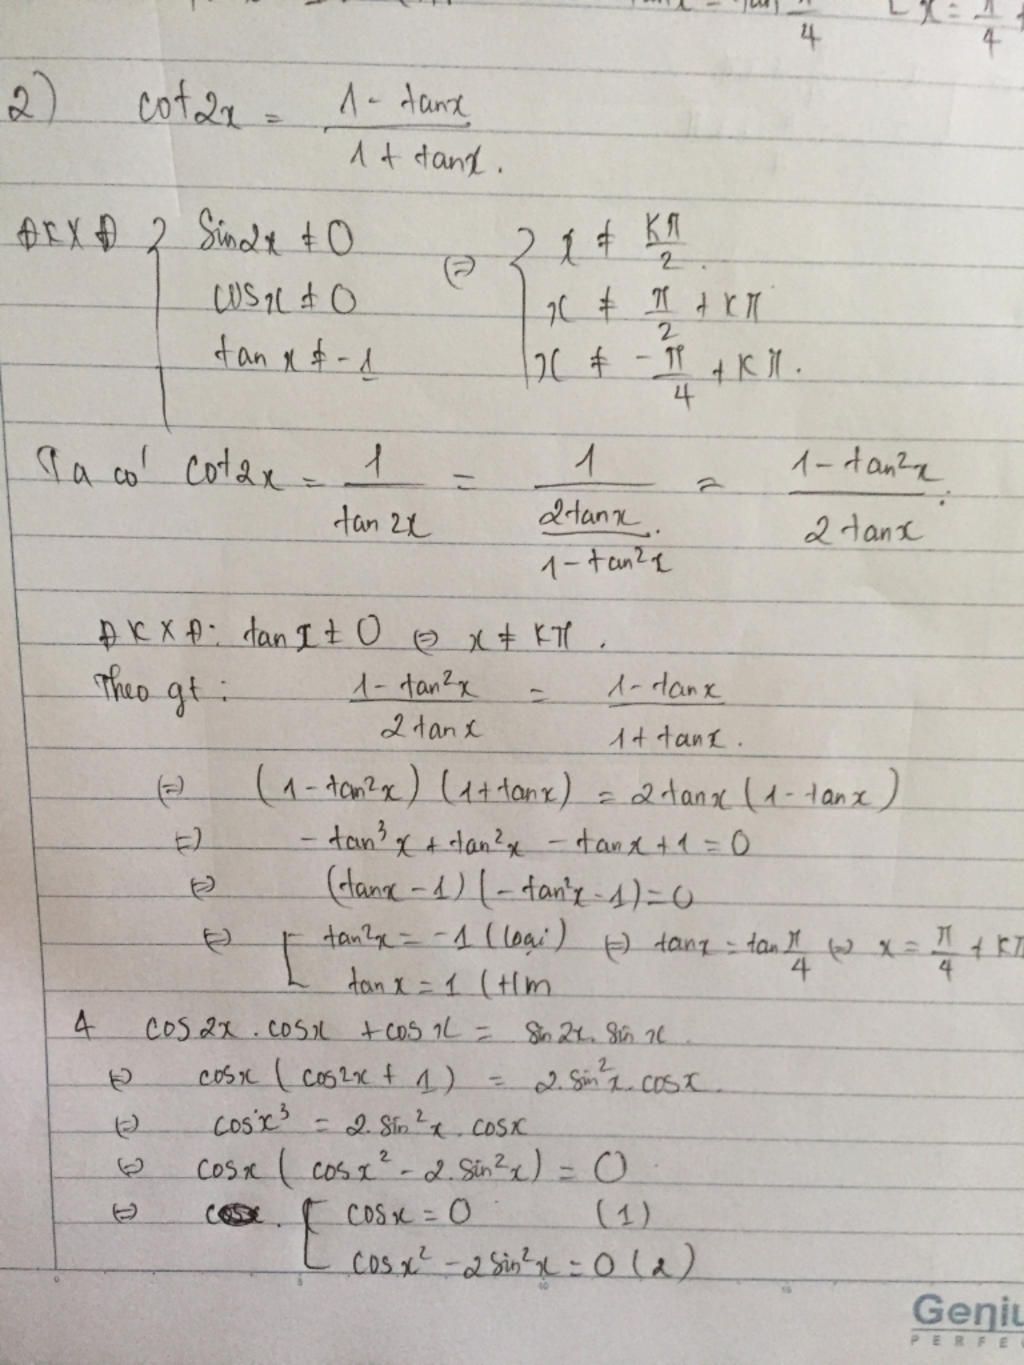 tan x = tan π/4 [ x = π/4 +
2) cot2x = (1 - tanx)/(1 + tanx).
ĐKXĐ { sin2x ≠ 0 ⇔ { x ≠ kπ/2.
cosx ≠ 0 x ≠ π/2 + kπ
tan x ≠ -1 x ≠ -π/4 + kπ.
Ta có cot2x = 1/(tan 2x) = 1/((2tanx)/(1-tan²x)) = (1-tan²x)/(2tanx).
ĐKXĐ: tan x ≠ 0 ⇔ x ≠ kπ.
Theo gt: (1-tan²x)/(2tanx) = (1-tanx)/(1+tanx).
⇔ (1-tan²x)(1+tanx) = 2tanx(1-tanx)
⇔ -tan³x + tan²x - tanx + 1 = 0
⇔ (tanx - 1)(-tan²x - 1) = 0
⇔ [ tan²x = -1 (loại) ⇔ tanx = tan π/4 ⇔ x = π/4 + kπ
tanx = 1 (t/m
4 cos2x.cosx + cosx = sin2x.sinx
⇔ cosx(cos2x + 1) = 2.sin²x.cosx.
⇔ cosx³ = 2.sin²x.cosx
⇔ cosx(cosx² - 2.sin²x) = 0
⇔ [ cosx = 0 (1)
cosx² - 2sin²x = 0 (2)
0 5 10 15
Geniu
PERFE